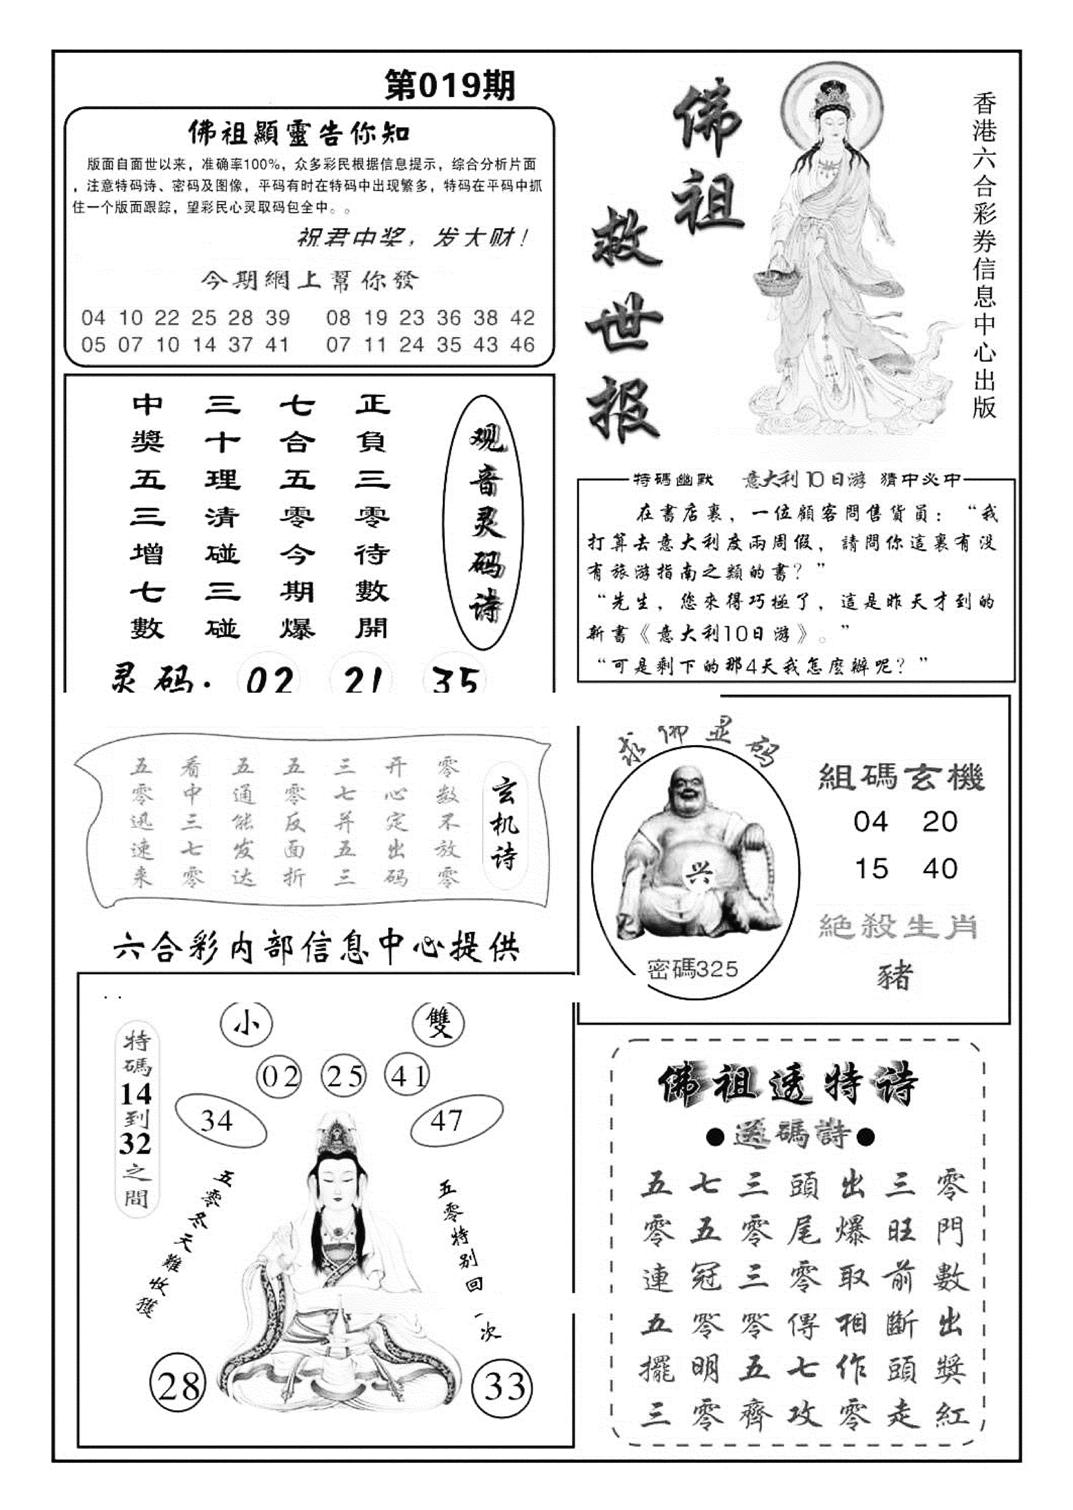 第019期
佛祖顯靈告你知
版面自面世以来，准确率100%，众多彩民根据信息提示，综合分析片面
，注意特码诗、密码及图像，平码有时在特码中出现繁多，特码在平码中抓
住一个版面跟踪，望彩民心灵取码包全中。。
祝君中奖，发大财！
今期網上幫你發
04 10 22 25 28 39 08 19 23 36 38 42
05 07 10 14 37 41 07 11 24 35 43 46
佛祖
救世报
香港六合彩券信息中心出版
观音灵码诗
正負三零待數開
七合五零今期爆
三十理清碰三碰
中獎五三增七數
灵码: 02 21 35
特碼幽默 意大利10日游 猜中必中
在書店裏，一位顧客問售貨員：“我
打算去意大利度兩周假，請問你這裏有没
有旅游指南之類的書？”
“先生，您來得巧極了，這是昨天才到的
新書《意大利10日游》。”
“可是剩下的那4天我怎麽辦呢？”
玄机诗
零数不放零
开心定出码
三七并五三
五零反面折
五通能发达
看中三七零
五零迅速来
求佛显码
兴
密碼325
組碼玄機
04 20
15 40
絕殺生肖
豬
六合彩内部信息中心提供
特碼14到32之間
小 雙
02 25 41
34 47
五零冬天難收獲
五零特别回一次
28 33
佛祖透特诗
●送碼詩●
零門數出獎紅
三旺前斷頭走
出爆取相作零
頭尾零傳七攻
三零三零五齊
七五冠零明零
五零連五擺三